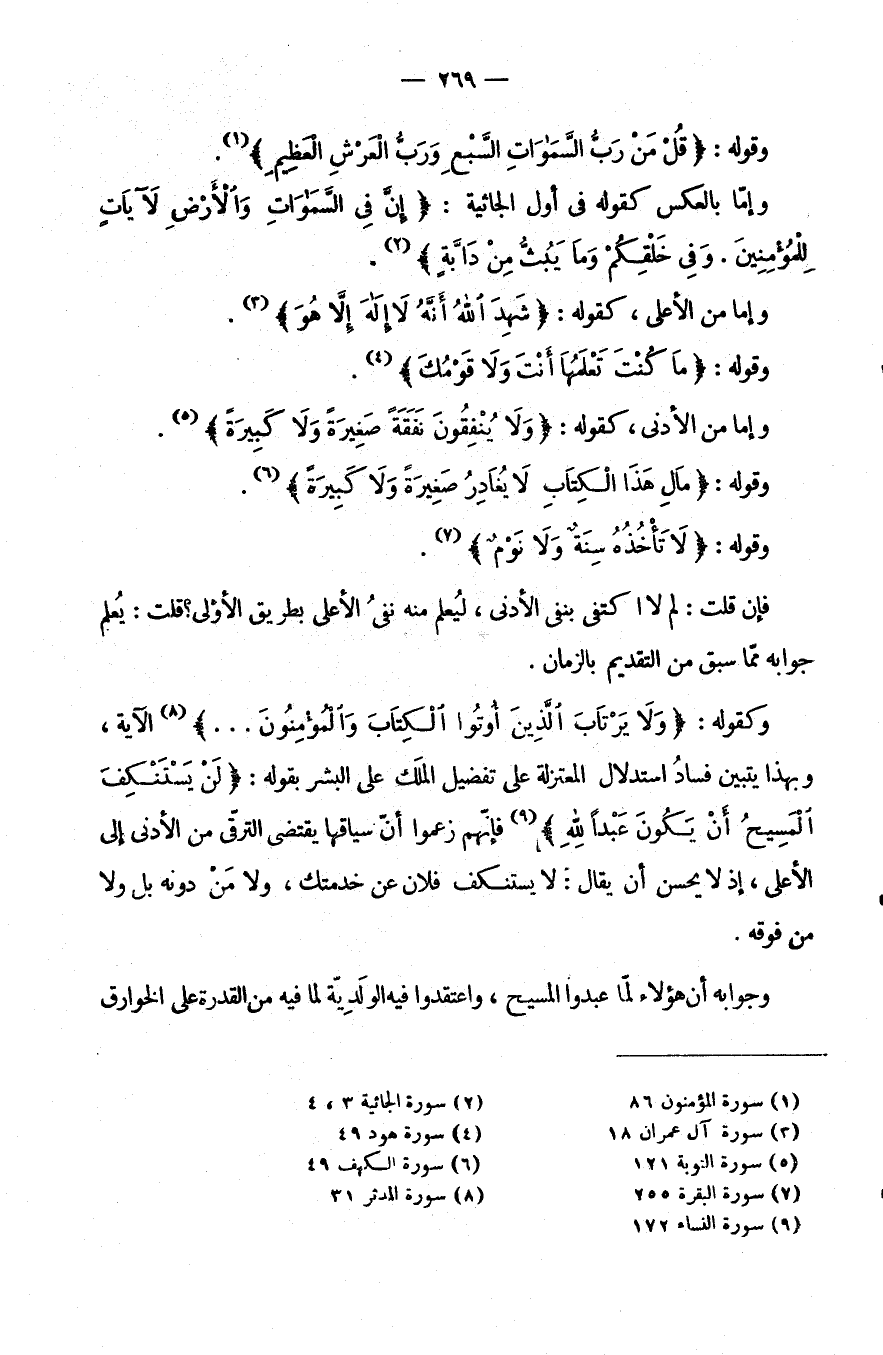 — ٢٦٩ —
وقوله : ﴿ قُلْ مَنْ رَبُّ السَّمَوَاتِ السَّبْعِ وَرَبُّ الْعَرْشِ الْعَظِيمِ ﴾(١).
وإمّا بالعكس كقوله فى أول الجاثية : ﴿ إِنَّ فِى السَّمَوَاتِ وَٱلْأَرْضِ لَآيَاتٍ
لِلْمُؤْمِنِينَ . وَفِى خَلْقِكُمْ وَمَا يَبُثُّ مِنْ دَابَّةٍ ﴾(٢) .
وإما من الأعلى ، كقوله : ﴿ شَهِدَ ٱللهُ أَنَّهُ لَا إِلَهَ إِلَّا هُوَ ﴾(٣) .
وقوله : ﴿ مَا كُنْتَ تَعْلَمُهَا أَنْتَ وَلَا قَوْمُكَ ﴾(٤) .
وإما من الأدنى ، كقوله : ﴿ وَلَا يُنْفِقُونَ نَفَقَةً صَغِيرَةً وَلَا كَبِيرَةً ﴾(٥) .
وقوله : ﴿ مَالِ هَذَا الْكِتَابِ لَا يُغَادِرُ صَغِيرَةً وَلَا كَبِيرَةً ﴾(٦) .
وقوله : ﴿ لَا تَأْخُذُهُ سِنَةٌ وَلَا نَوْمٌ ﴾(٧) .
فإن قلت : لم لا اكتفى بنفى الأدنى ، ليُعلم منه نفىُ الأعلى بطريق الأوْلى؟ قلت : يُعلم
جوابه ممّا سبق من التقديم بالزمان .
وكقوله : ﴿ وَلَا يَرْتَابَ ٱلَّذِينَ أُوتُوا ٱلْكِتَابَ وَٱلْمُؤْمِنُونَ ... ﴾(٨) الآية ،
وبهذا يتبين فسادُ استدلال المعتزلة على تفضيل الملَك على البشر بقوله : ﴿ لَنْ يَسْتَنْكِفَ
ٱلْمَسِيحُ أَنْ يَكُونَ عَبْداً لِلهِ ﴾(٩) فإنّهم زعموا أنّ سياقها يقتضى الترقّى من الأدنى إلى
الأعلى ، إذ لا يحسن أن يقال : لا يستنكف فلان عن خدمتك ، ولا مَنْ دونه بل ولا
من فوقه .
وجوابه أن هؤلاء لمّا عبدوا المسيح ، واعتقدوا فيه الولَدِيّة لما فيه من القدرة على الخوارق
(١) سورة المؤمنون ٨٦ (٢) سورة الجاثية ٣ ، ٤
(٣) سورة آل عمران ١٨ (٤) سورة هود ٤٩
(٥) سورة التوبة ١٢١ (٦) سورة الكهف ٤٩
(٧) سورة البقرة ٢٥٥ (٨) سورة المدثر ٣١
(٩) سورة النساء ١٧٢